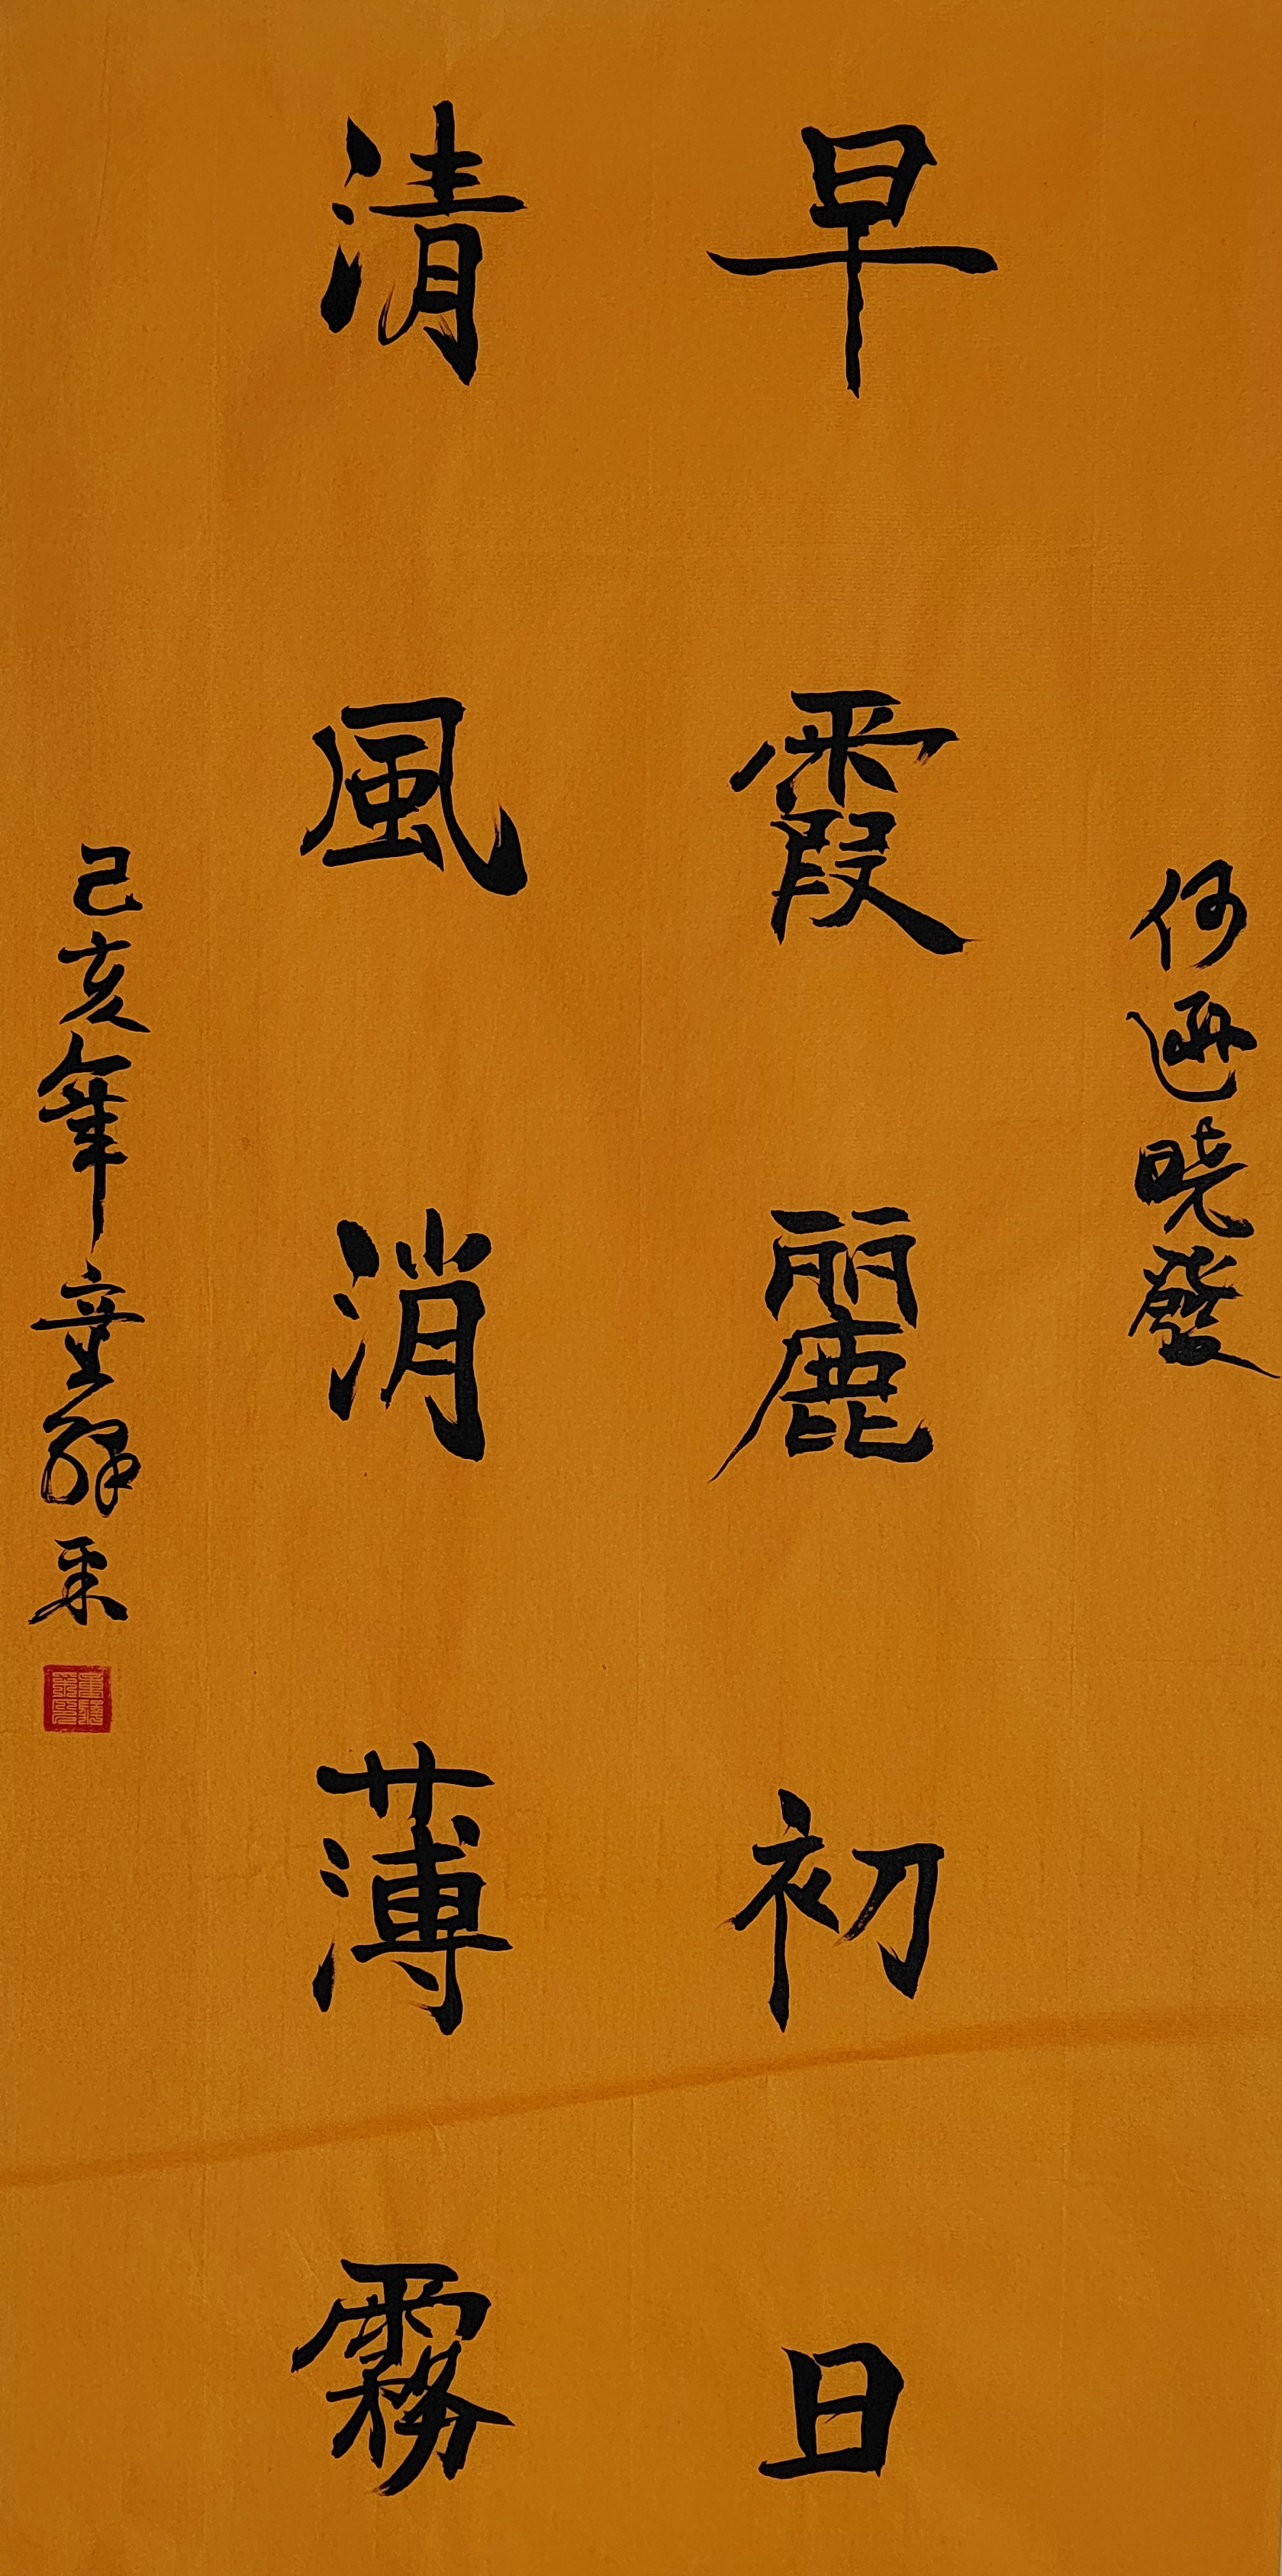 何遜曉發
早霞麗初日
清風消薄霧
己亥年童釋采